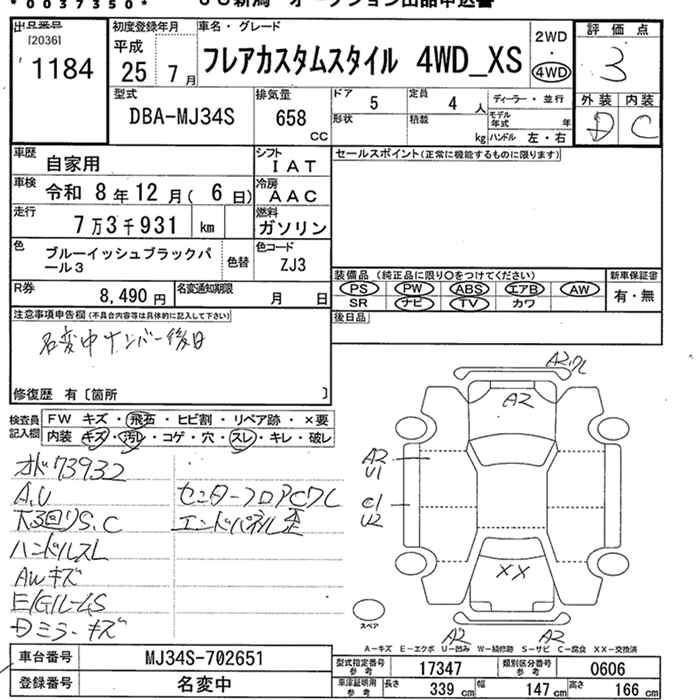 * 0037350 *
出品番号
[2036]
1184
初度登録年月
平成
25年7月
車名・グレード
フレアカスタムスタイル 4WD_XS
2WD
4WD
評価点
3
外装 内装
D C
型式
DBA-MJ34S
排気量
658
cc
ドア 5
定員 4 人
ディーラー・並行
形状
積載 kg
モデル年式 年
ハンドル 左・右
車歴 自家用
シフト IAT
セールスポイント(正常に機能するものに限ります)
車検 令和 8年12月( 6日)
冷房 AAC
走行 7万3千931 km
燃料 ガソリン
色 ブルーイッシュブラックパール3
色替
色コード ZJ3
装備品 (純正品に限り○をつけてください)
新車保証書
PS PW ABS エアB AW
SR ナビ TV カワ
有・無
R券 8,490円
名変通知期限 月 日
後日品
注意事項申告欄(不具合内容等は具体的に記入して下さい)
名変中ナンバー後日
修復歴 有〔箇所 〕
検査員記入欄
FW キズ・飛石・ヒビ割・リペア跡・×要
内装 キズ・汚れ・コゲ・穴・スレ・キレ・破レ
オド73932
A,U
下回りS,C
ハンドルスレ
AWキズ
センターフロアCワレ
エンドパネル歪
ミラーキズ
A2ワレ
A2
A2
U1
C1
U2
XX
A2
A2
スペア
A-キズ E-エクボ U-凹み W-補修跡 S-サビ C-腐食 XX-交換済
車台番号 MJ34S-702651
登録番号 名変中
型式指定番号 参考 17347
類別区分番号 参考 0606
車庫証明用参考 長さ 339 cm 幅 147 cm 高さ 166 cm